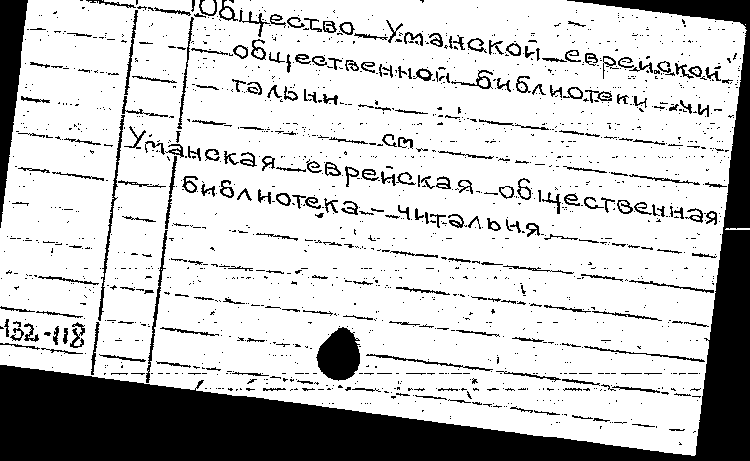 Общество Уманской еврейской
общественной библиотеки-чи-
тальни
см
Уманская еврейская общественная
библиотека-читальня.
132-118